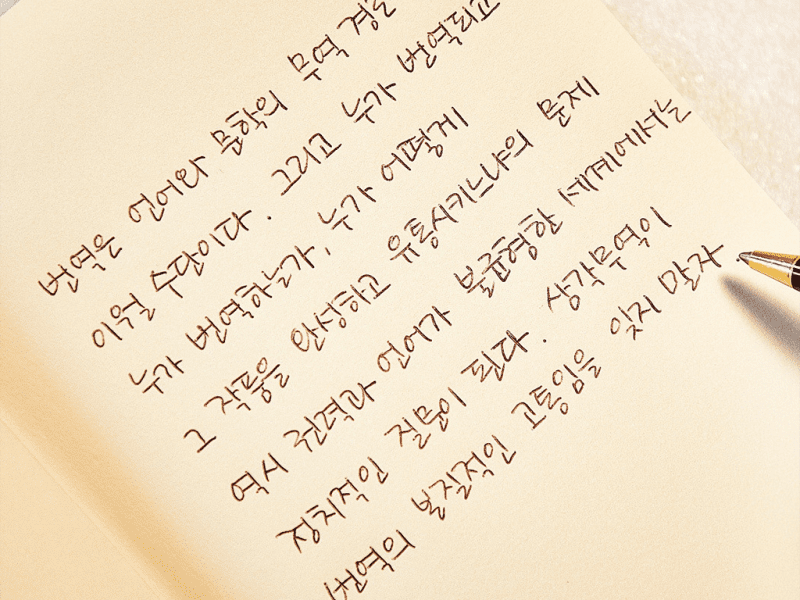 번역은 언어와 문학의 무역
이월 수단이다. 그리고 누가 번역되고
누가 번역하는가, 누가 어떻게
그 작품을 완성하고 유통시키느냐의 문제
역시 권력과 언어가 불균형한 세계에서는
정치적인 질문이 된다. 삼각무역이
번역의 본질적인 고통임을 잊지 말자